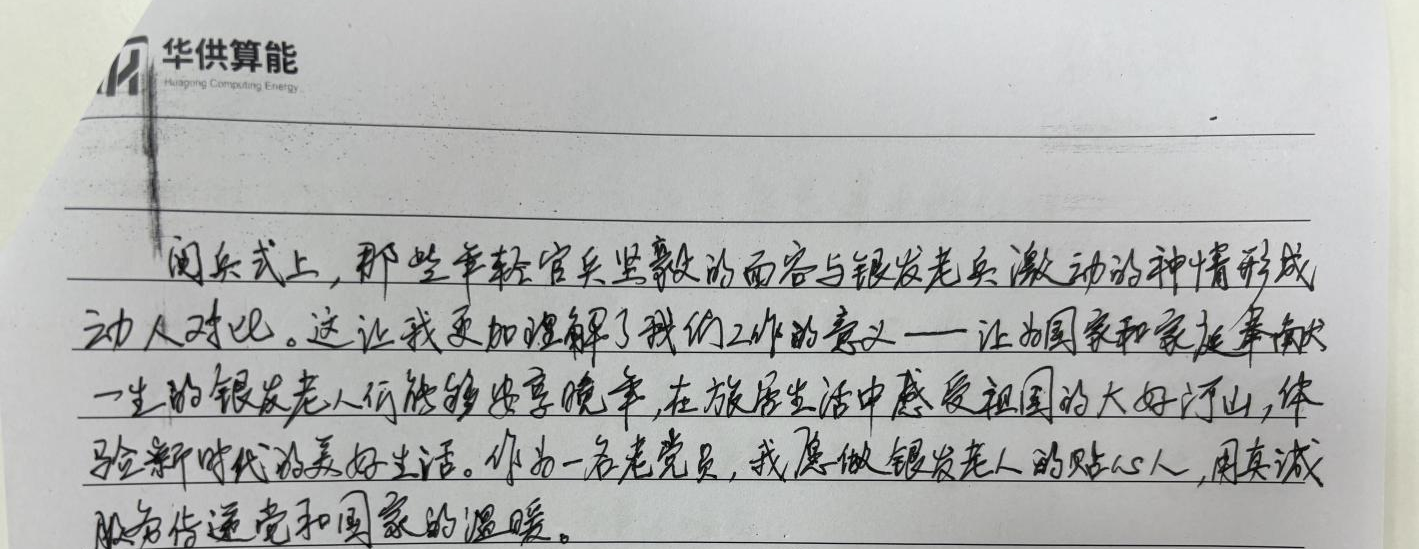 华供算能
Huagong Computing Energy
阅兵式上,那些年轻官兵坚毅的面容与银发老兵激动的神情形成
动人对比。这让我更加理解了我们工作的意义——让为国家和家庭奉献
一生的银发老人们能够安享晚年,在旅居生活中感受祖国的大好河山,体
验新时代的美好生活。作为一名老党员,我愿做银发老人的贴心人,用真诚
服务传递党和国家的温暖。